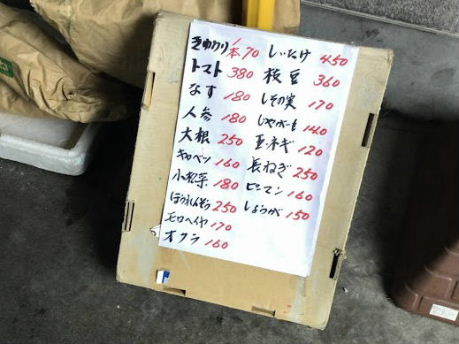 きゅうり 1本70
トマト 380
なす 180
人参 180
大根 250
キャベツ 160
小松菜 180
ほうれんそう 250
モロヘイヤ 170
オクラ 160
しいたけ 450
枝豆 360
しその実 170
じゃがいも 140
玉ネギ 120
長ねぎ 250
ピーマン 160
しょうが 150